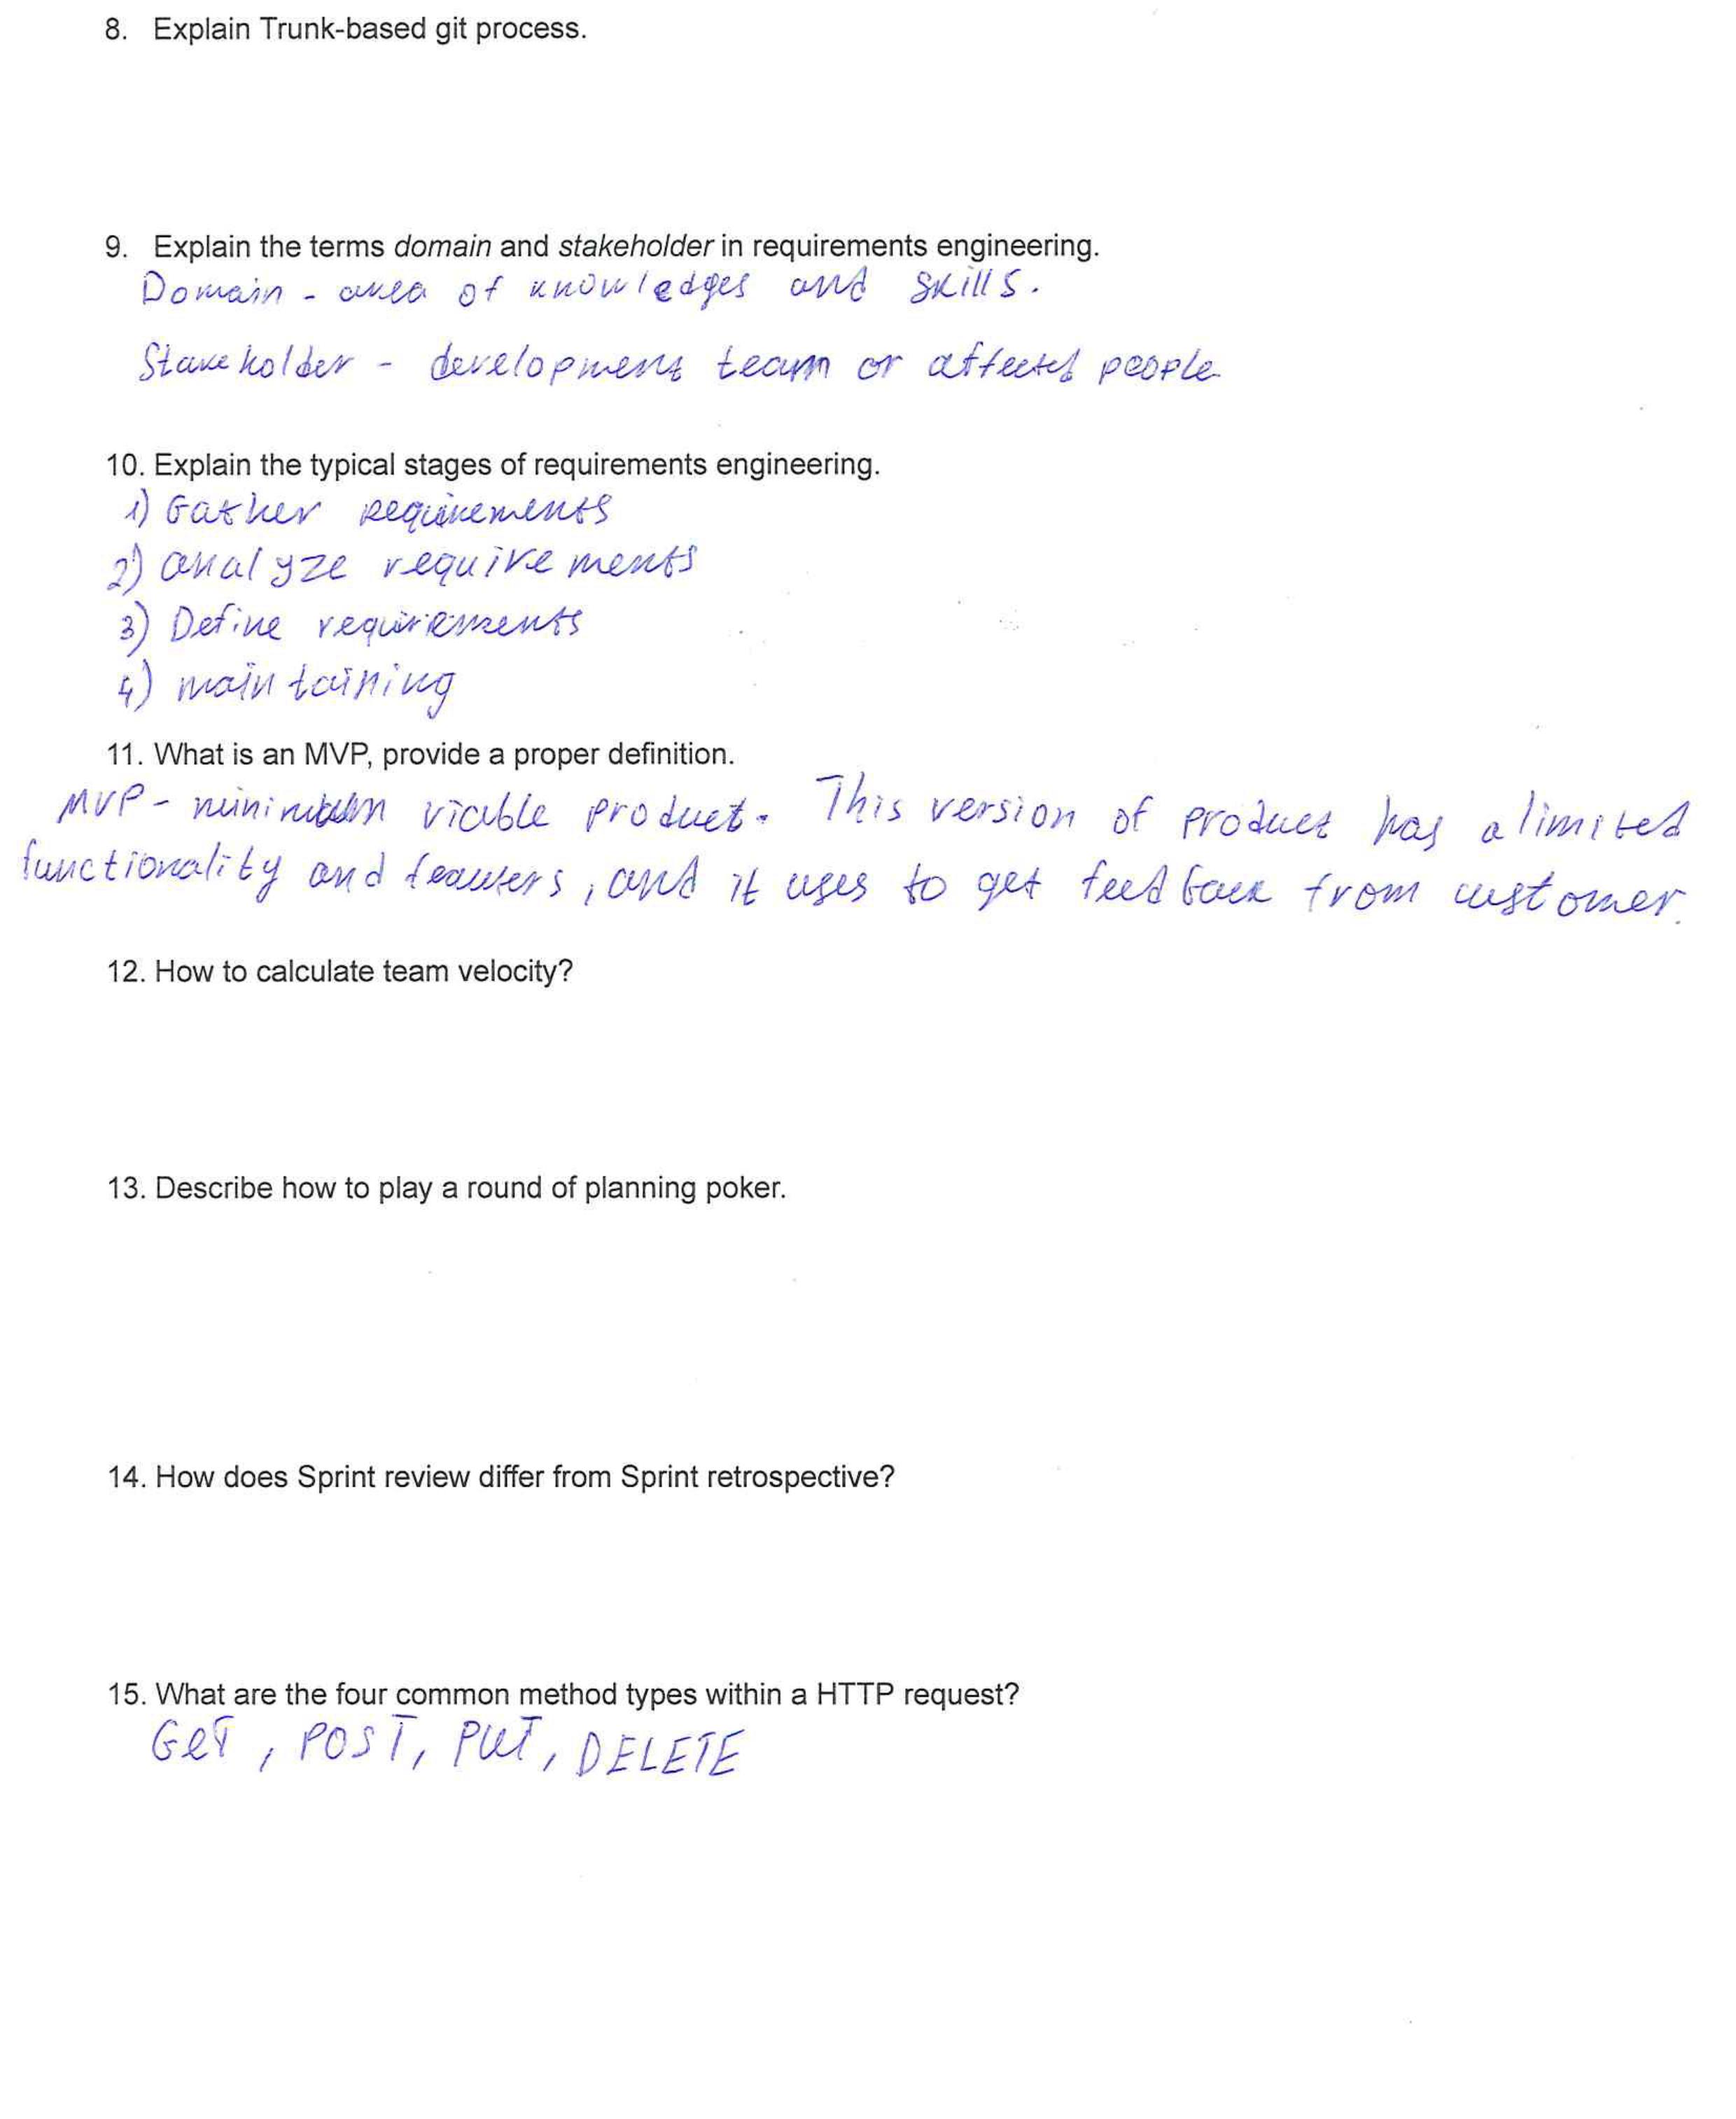 8. Explain Trunk-based git process.
9. Explain the terms domain and stakeholder in requirements engineering.
Domain - area of knowledges and skills.
Stakeholder - development team or affected people
10. Explain the typical stages of requirements engineering.
1) Gather requirements
2) analyze requirements
3) Define requriements
4) maintaining
11. What is an MVP, provide a proper definition.
MVP - minimum viable product. This version of product has a limited
functionality and feauters, and it uses to get feedback from customer.
12. How to calculate team velocity?
13. Describe how to play a round of planning poker.
14. How does Sprint review differ from Sprint retrospective?
15. What are the four common method types within a HTTP request?
GET, POST, PUT, DELETE